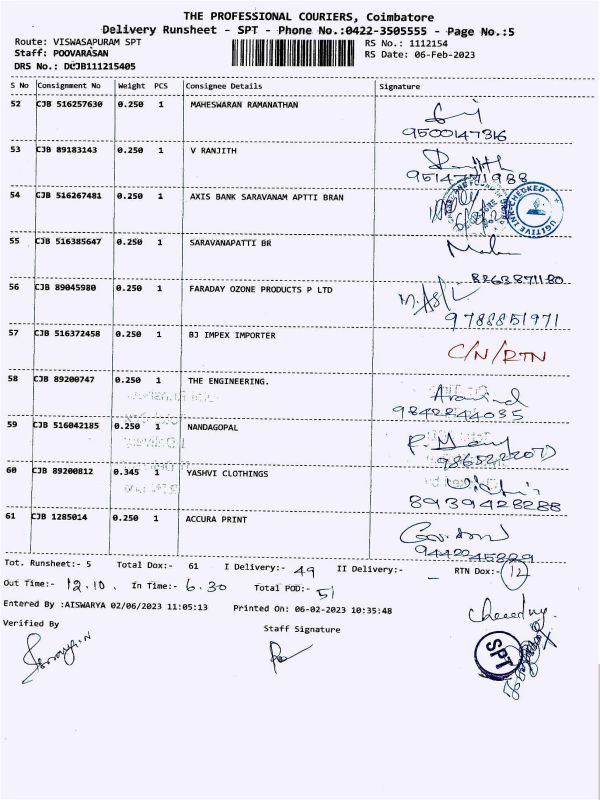 THE PROFESSIONAL COURIERS, Coimbatore
Delivery Runsheet - SPT - Phone No.:0422-3505555 - Page No.:5
Route: VISWASAPURAM SPT RS No.: 1112154
Staff: POOVARASAN RS Date: 06-Feb-2023
DRS No.: DCJB111215405
S No Consignment No Weight PCS Consignee Details Signature
52 CJB 516257630 0.250 1 MAHESWARAN RAMANATHAN
9500147316
53 CJB 89183143 0.250 1 V RANJITH
9514771988
54 CJB 516267481 0.250 1 AXIS BANK SARAVANAM APTTI BRAN
55 CJB 516385647 0.250 1 SARAVANAPATTI BR
56 CJB 89045980 0.250 1 FARADAY OZONE PRODUCTS P LTD
9788851971
57 CJB 516372458 0.250 1 BJ IMPEX IMPORTER
C/N/RTN
58 CJB 89200747 0.250 1 THE ENGINEERING. Aravind
9842844035
59 CJB 516042185 0.250 1 NANDAGOPAL
60 CJB 89200812 0.345 1 YASHVI CLOTHINGS
8939428288
61 CJB 1285014 0.250 1 ACCURA PRINT
Tot. Runsheet:- 5 Total Dox:- 61 I Delivery:- 49 II Delivery:- - RTN Dox:- 12
Out Time:- 12.10. In Time:- 6.30 Total POD:- 51
Entered By :AISWARYA 02/06/2023 11:05:13 Printed On: 06-02-2023 10:35:48
Verified By Staff Signature
SPT